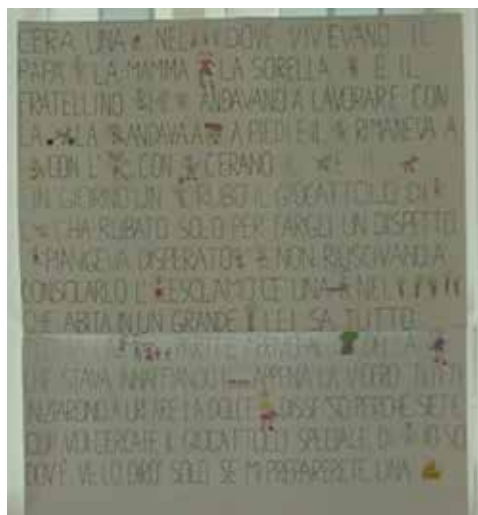 C'ERA UNA NEL DOVE VIVEVANO IL
PAPÀ LA MAMMA LA SORELLA E IL
FRATELLINO ANDAVANO A LAVORARE CON
LA LA ANDAVA A A PIEDI E IL RIMANEVA A
CON L' CON C'ERANO IL E IL
UN GIORNO UN RUBÒ IL GIOCATTOLO DI
L' HA RUBATO SOLO PER FARGLI UN DISPETTO
PIANGEVA DISPERATO E NON RIUSCIVANO A
CONSOLARLO L' ESCLAMÒ C'È UNA NEL
CHE ABITA IN UN GRANDE LEI SA TUTTO
CHE STAVA INNAFFIANDO APPENA LA VIDERO TUTTI
INIZIARONO A URLARE LA DOLCE DISSE SO PERCHÉ SIETE
QUI VOI CERCATE IL GIOCATTOLO SPECIALE DI IO SO
DOV'È VE LO DIRÒ SOLO SE MI PREPARERETE UNA